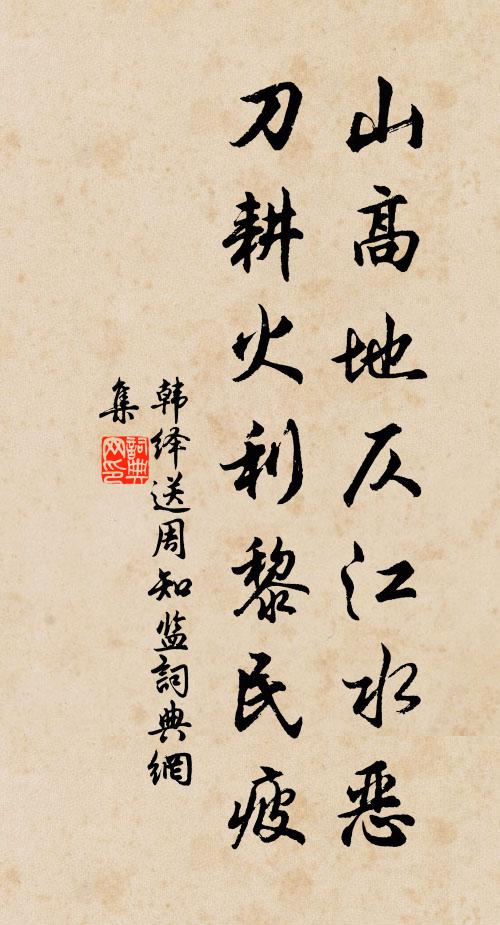 山高地仄江水恶
刀耕火利黎民疲
韩绛送周知监詞典網
集
詞典網印